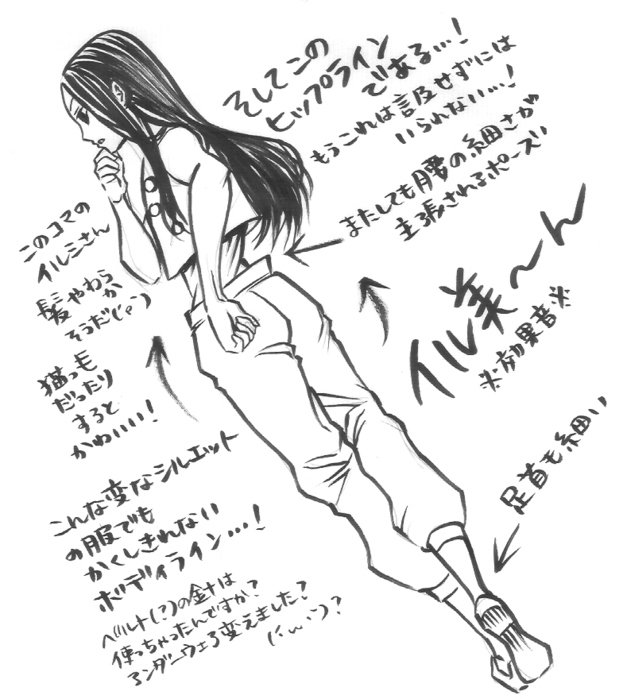 そしてこの
ヒップライン
である…!
もうこれは言及せずには
いられない…!
またしても腰の細さが
主張されるポーズい
イル美〜ん
※効果音※
足首も細い
このコマの
イルミさん
髪やわらか
そうだ(´o`)
猫っ毛
だったり
すると
かわいい!
こんな変なシルエット
の服でも
かくしきれない
ボディライン…!
ベルト(?)の金ナは
使っちゃったんですか?
アンダーウェア変えました?
(´ω`)?